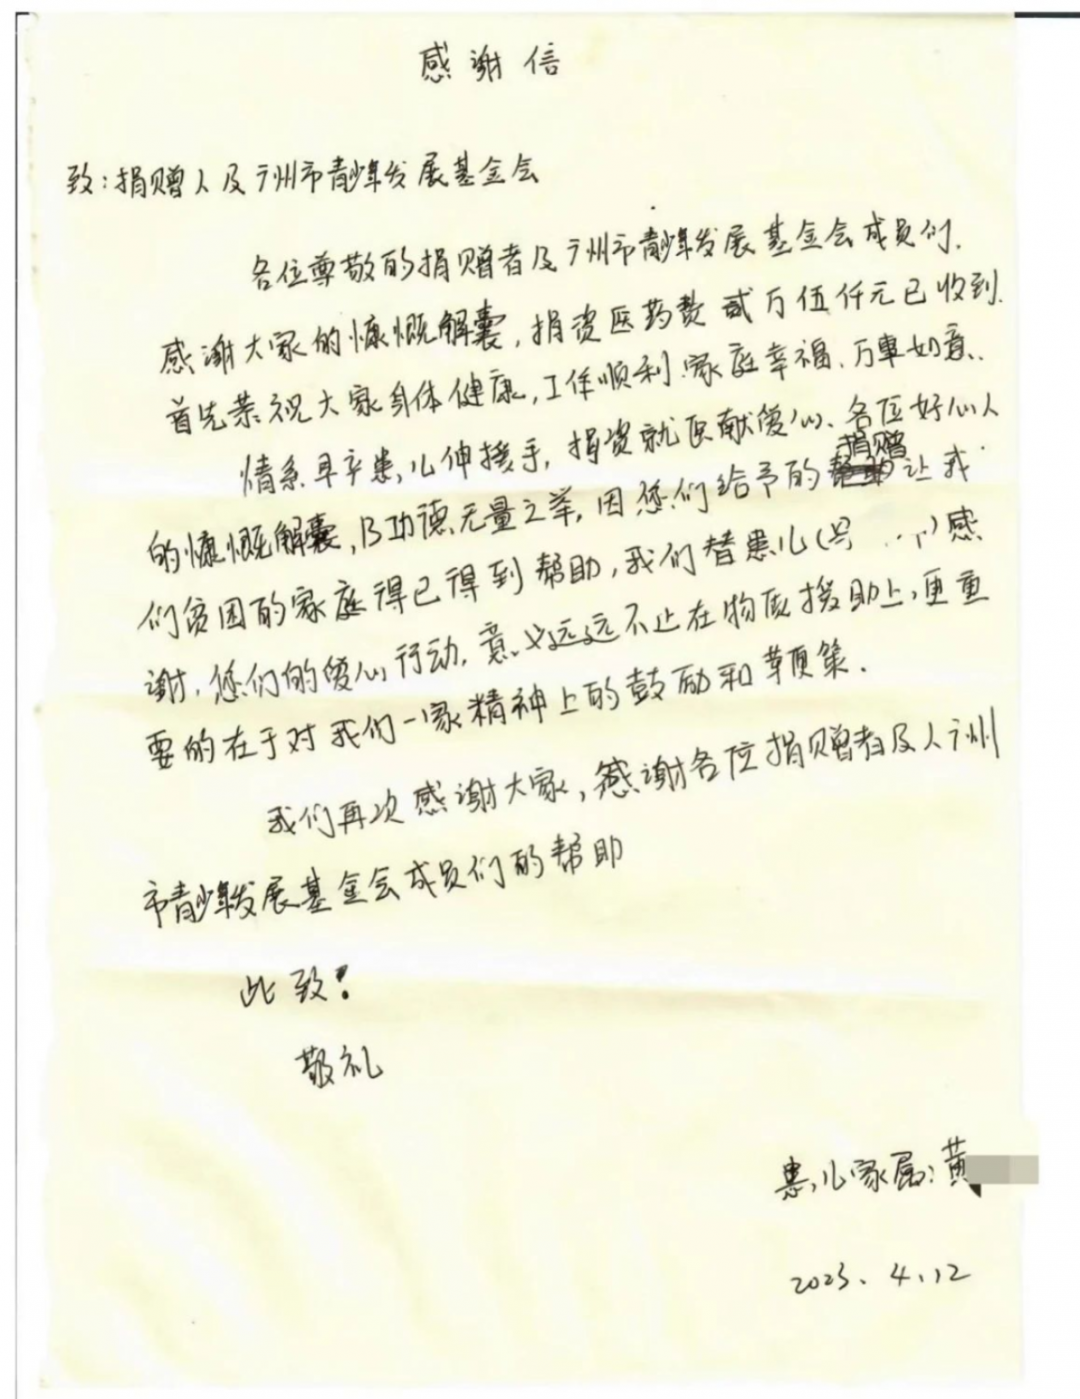 感谢信
致：捐赠人及广州市青少年发展基金会
各位尊敬的捐赠者及广州市青少年发展基金会成员们.
感谢大家的慷慨解囊，捐资医药费贰万伍仟元已收到.
首先恭祝大家身体健康，工作顺利.家庭幸福、万事如意.
情系早卒患儿伸援手，捐资就医献爱心、各位好心人
的慷慨解囊，乃功德无量之举，因您们给予的捐赠让我
们贫困的家庭得已得到帮助，我们替患儿（吴）感
谢，您们的爱心行动，意义远远不止在物质援助上，更重
要的在于对我们一家精神上的鼓励和鞭策.
我们再次感谢大家，感谢各位捐赠者及人广州
市青少年发展基金会成员们的帮助
此致！
敬礼
患儿家属：黄
2023.4.12